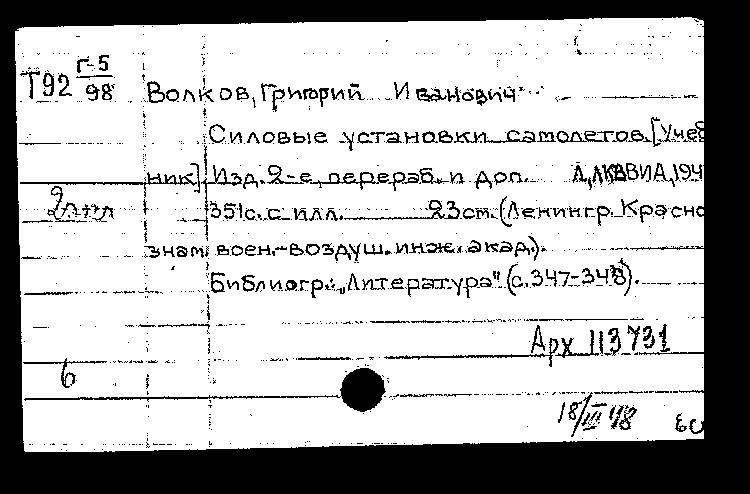 Т92 Г-5/98 Волков, Григорий Иванович
Силовые установки самолетов. [Учеб
ник] Изд. 2-е, перераб. и доп. Л, ЛКВВИА, 194
351с. с илл. 23см. (Ленингр. Красно
знам. воен.-воздуш. инж. акад.).
Библиогр.: „Литература" (с. 347-348).
Арх 113731
6
18/III 48